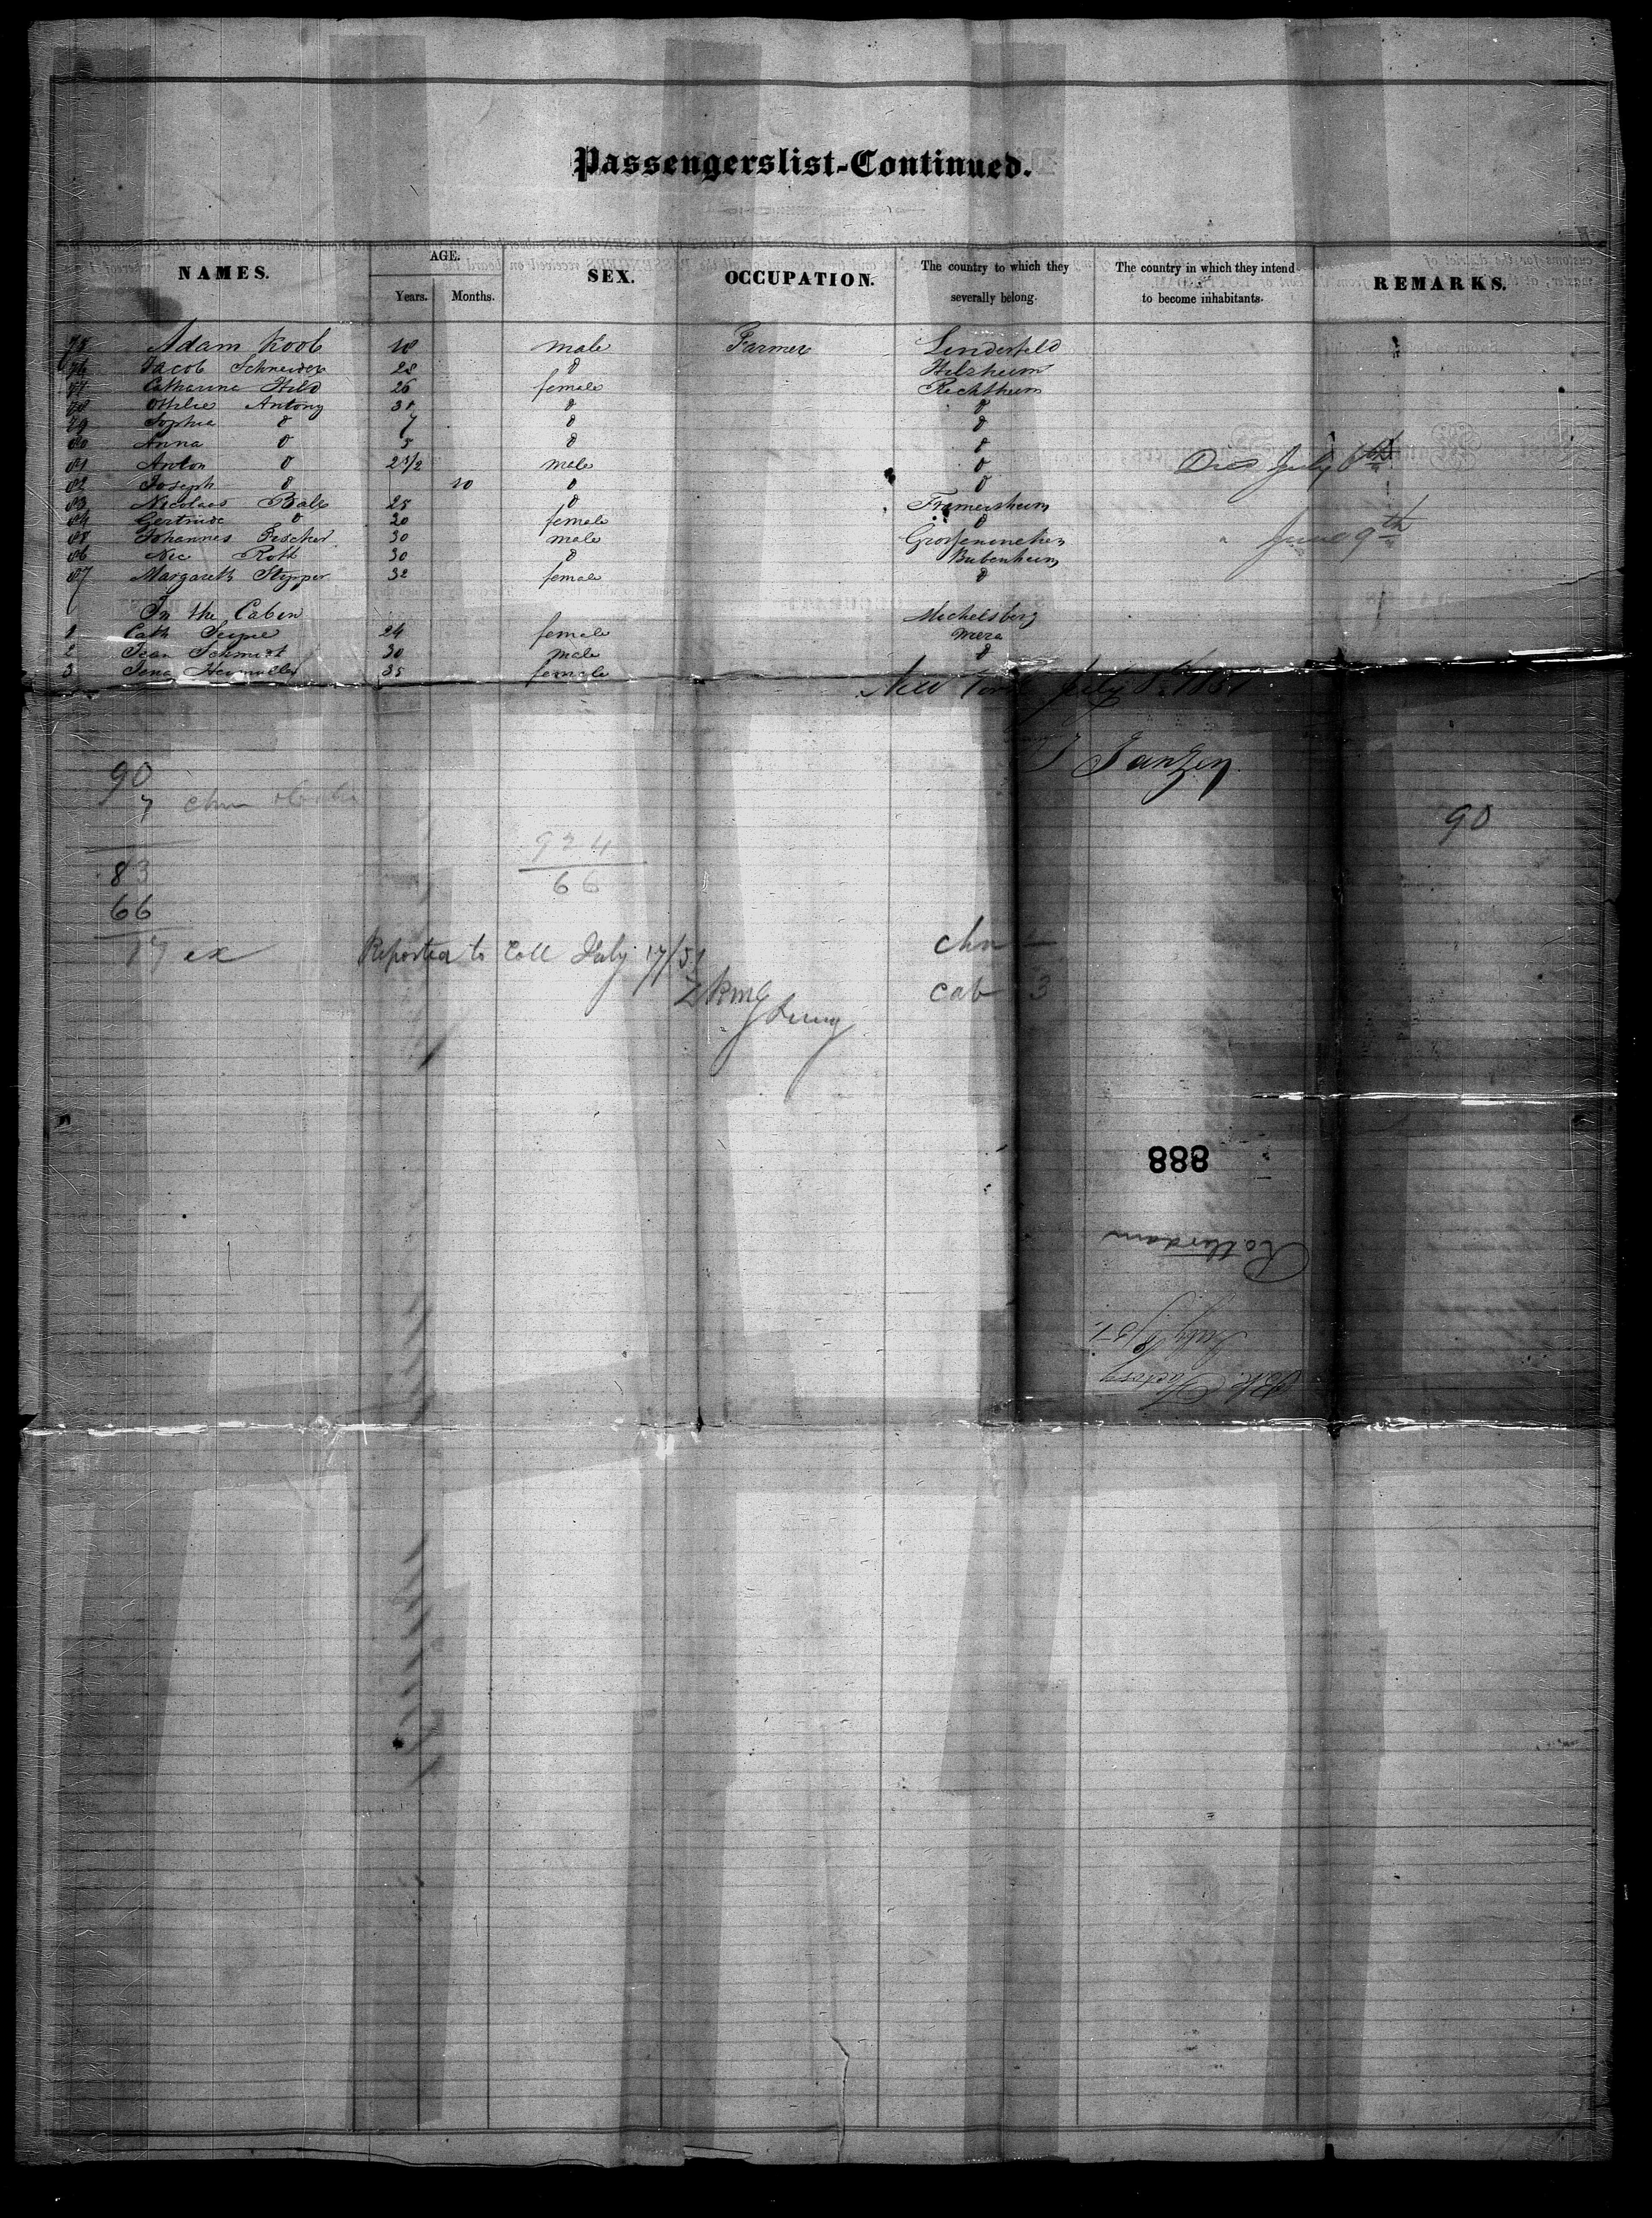 Passengerslist-Continued.
NAMES. AGE. SEX. OCCUPATION. The country to which they severally belong. The country in which they intend to become inhabitants. REMARKS.
Years. Months.
75 Adam Koob 18 male Farmer Linderfeld
76 Jacob Schneider 28 d Hilsheim
77 Catharina Hild 26 female Rechtheim
78 Ottilie Antony 31 d d
79 Sophia d 7 d d
80 Anna d 5 d d
81 Anton d 2 1/2 male d Died July 6th
82 Joseph d 10 d d
83 Nicolaus Balz 25 d Framersheim
84 Gertrude d 20 female d
85 Johannes Fischer 30 male " June 9th
86 Nic Roth 30 d Bubenheim
87 Margareth Stepper 32 female d
In the Cabin Michelsberg
1 Cath 24 female
2 Jean Schmidt 30 male d
3 35 female
New York July 8th 1851
J Janzen
90
7 chn
83
66
17 ex
924
66
90
Reported to Coll July 17/51
chn 4
cab 3
888
Rotterdam
July 8/51.
Bk. Factory